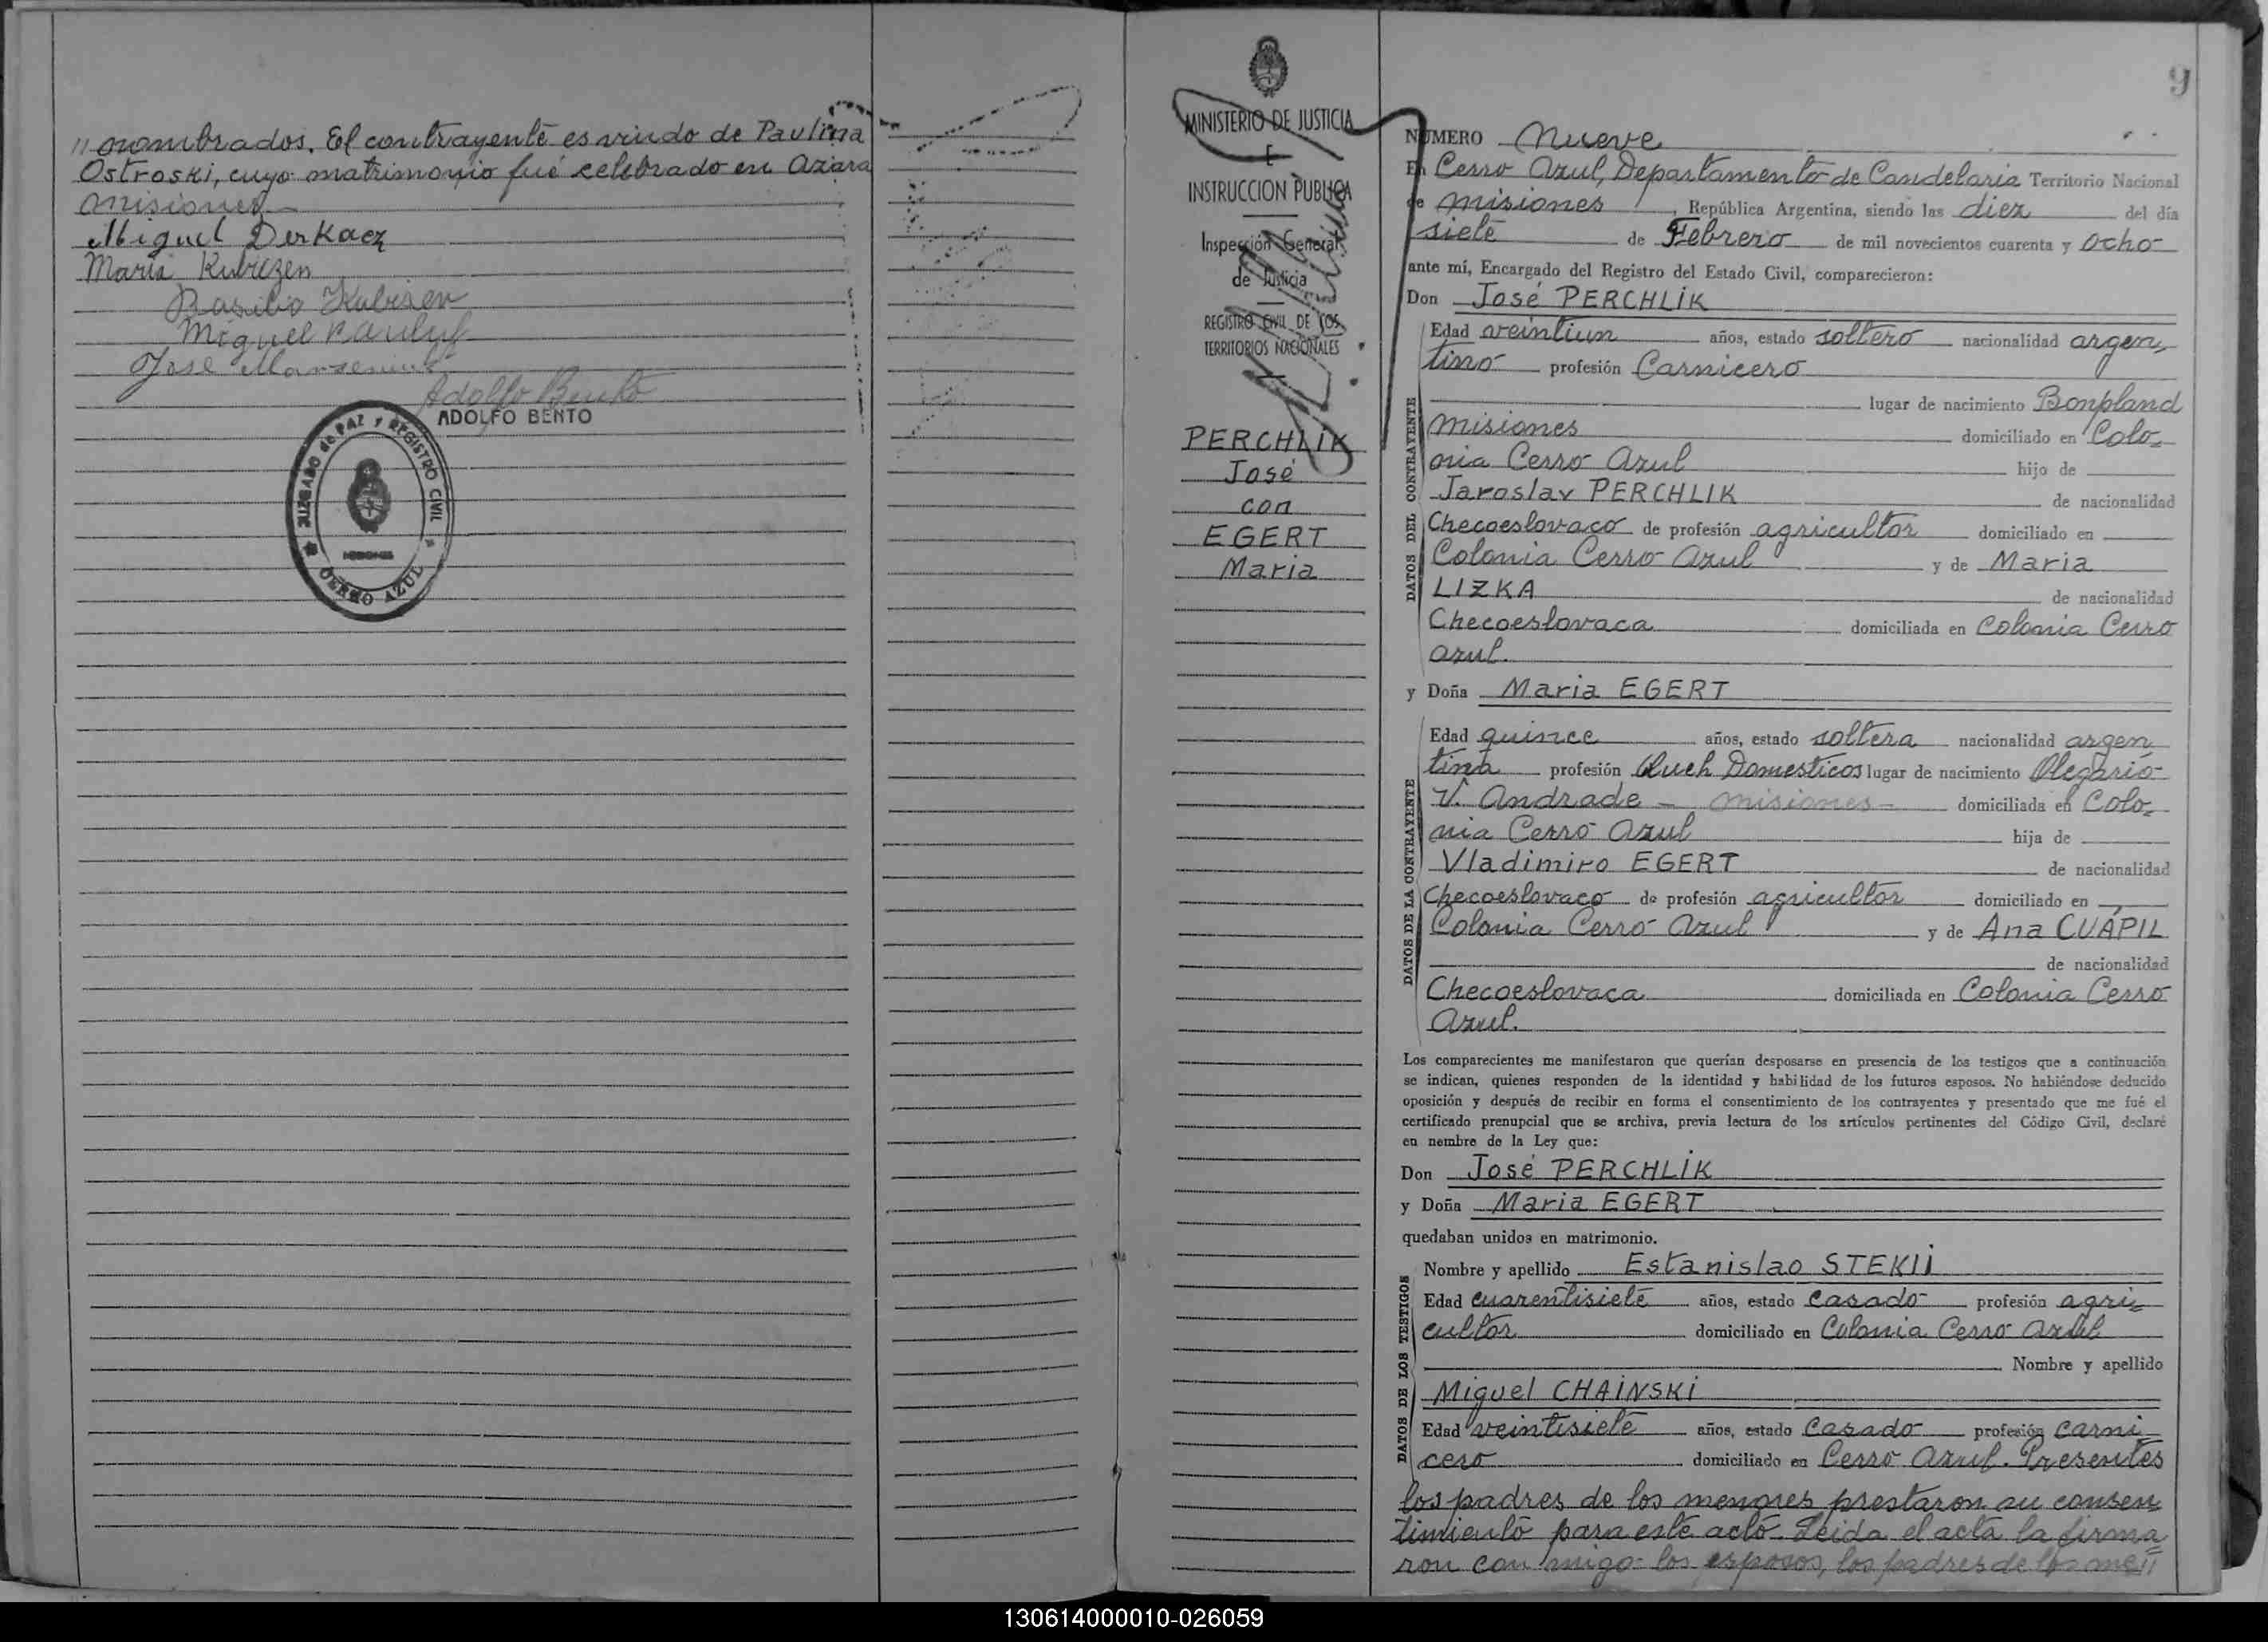 " nombrados. El contrayente es viudo de Paulina
Ostroski, cuyo matrimonio fué celebrado en Azara
Misiones
Miguel Derkacz
Maria Kubiczen
Basilio Kubisen
Miguel
Jose
Adolfo Bento
ADOLFO BENTO
JUZGADO de PAZ y REGISTRO CIVIL
MISIONES
CERRO AZUL
MINISTERIO DE JUSTICIA
E
INSTRUCCION PUBLICA
Inspección General
de Justicia
REGISTRO CIVIL DE LOS
TERRITORIOS NACIONALES
PERCHLIK
José
con
EGERT
Maria
9
NUMERO Nueve
En Cerro Azul, Departamento de Candelaria Territorio Nacional
de Misiones, República Argentina, siendo las diez del día
siete de Febrero de mil novecientos cuarenta y ocho
ante mí, Encargado del Registro del Estado Civil, comparecieron:
Don José PERCHLIK
DATOS DEL CONTRAYENTE
Edad veintiun años, estado soltero nacionalidad argen-
tino profesión Carnicero
lugar de nacimiento Bonpland
Misiones domiciliado en Colo-
nia Cerro Azul hijo de
Jaroslav PERCHLIK de nacionalidad
Checoeslovaco de profesión agricultor domiciliado en
Colonia Cerro Azul y de Maria
LIZKA de nacionalidad
Checoeslovaca domiciliada en Colonia Cerro
Azul.
y Doña Maria EGERT
DATOS DE LA CONTRAYENTE
Edad quince años, estado soltera nacionalidad argen
tina profesión Queh Domesticos lugar de nacimiento Olegario
V. Andrade - Misiones - domiciliada en Colo-
nia Cerro Azul hija de
Vladimiro EGERT de nacionalidad
Checoeslovaco de profesión agricultor domiciliado en
Colonia Cerro Azul y de Ana CUÁPIL
de nacionalidad
Checoeslovaca domiciliada en Colonia Cerro
Azul.
Los comparecientes me manifestaron que querían desposarse en presencia de los testigos que a continuación
se indican, quienes responden de la identidad y habilidad de los futuros esposos. No habiéndose deducido
oposición y después de recibir en forma el consentimiento de los contrayentes y presentado que me fué el
certificado prenupcial que se archiva, previa lectura de los artículos pertinentes del Código Civil, declaré
en nombre de la Ley que:
Don José PERCHLIK
y Doña Maria EGERT
quedaban unidos en matrimonio.
DATOS DE LOS TESTIGOS
Nombre y apellido Estanislao STEKIJ
Edad cuarentisiete años, estado casado profesión agri-
cultor domiciliado en Colonia Cerro Azul
Nombre y apellido
Miguel CHAINSKI
Edad veintisiete años, estado casado profesión carni-
cero domiciliado en Cerro Azul. Presentes
los padres de los menores prestaron su consen
timiento para este acto. Leida el acta la firma
ron con migo los esposos, los padres de los me"
130614000010-026059